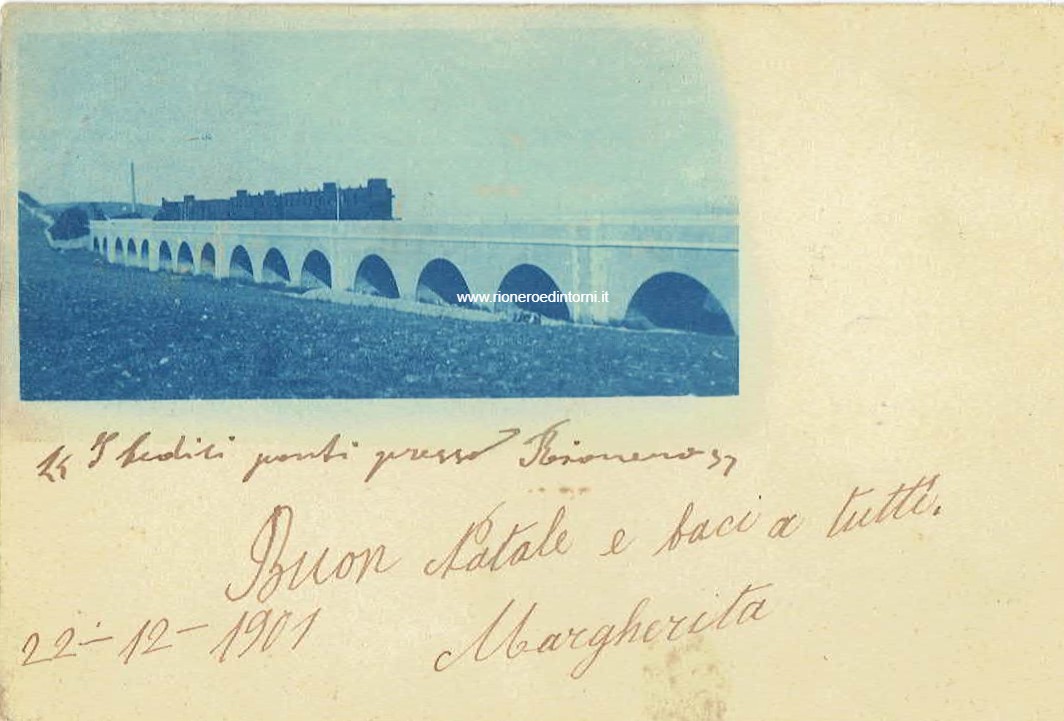 www.rioneroedintorni.it
"I tredici ponti presso Rionero"
Buon Natale e baci a tutti.
22-12-1901
Margherita